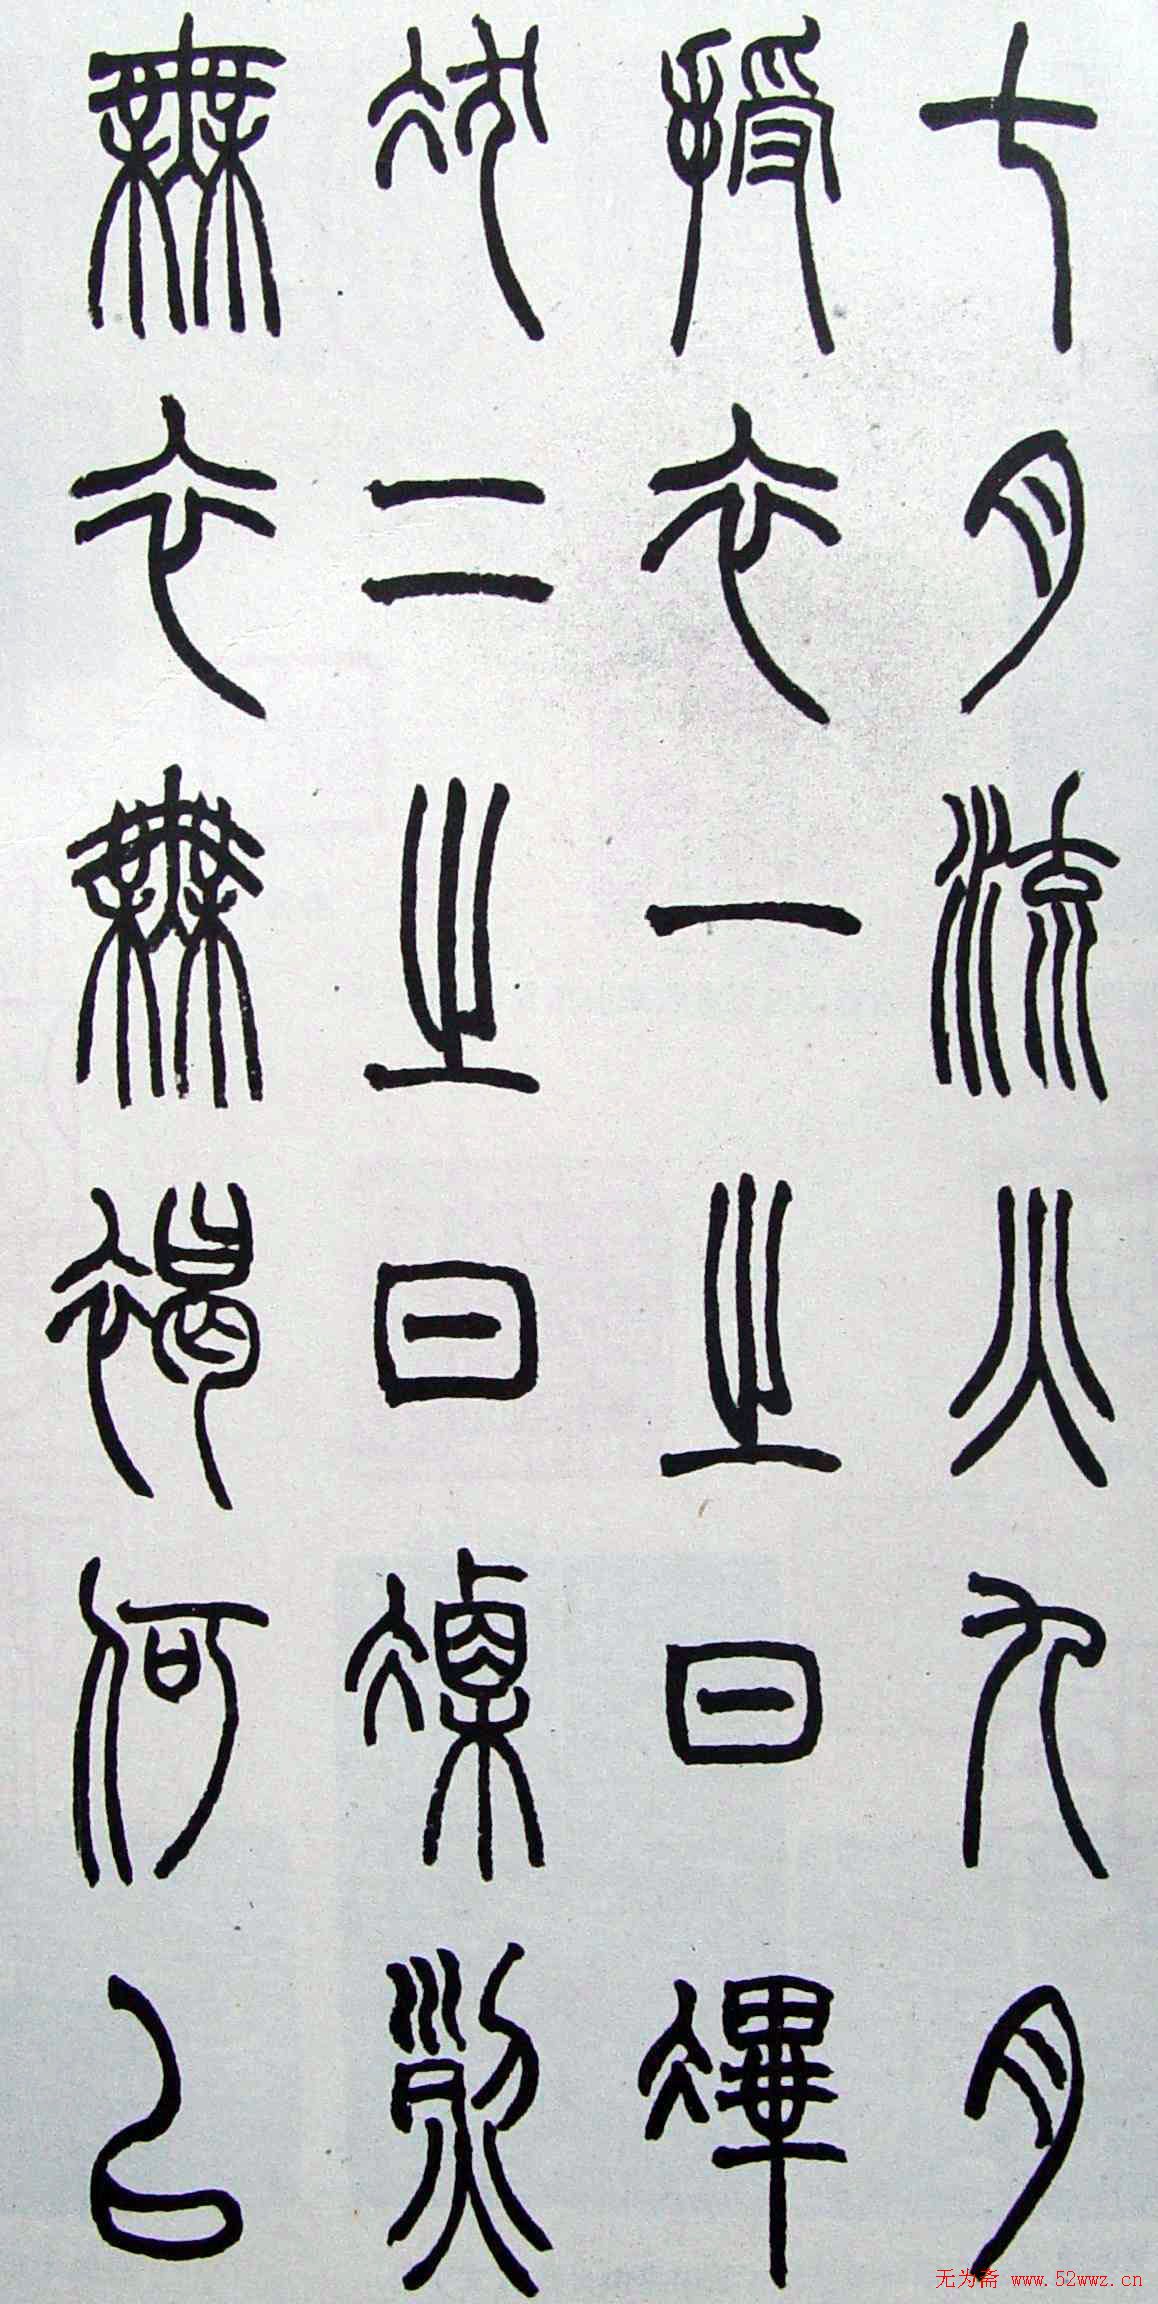 七月流火九月
授衣一之日㓖
冹二之日凓烈
無衣無褐何以
无为斋 www.52wwz.cn